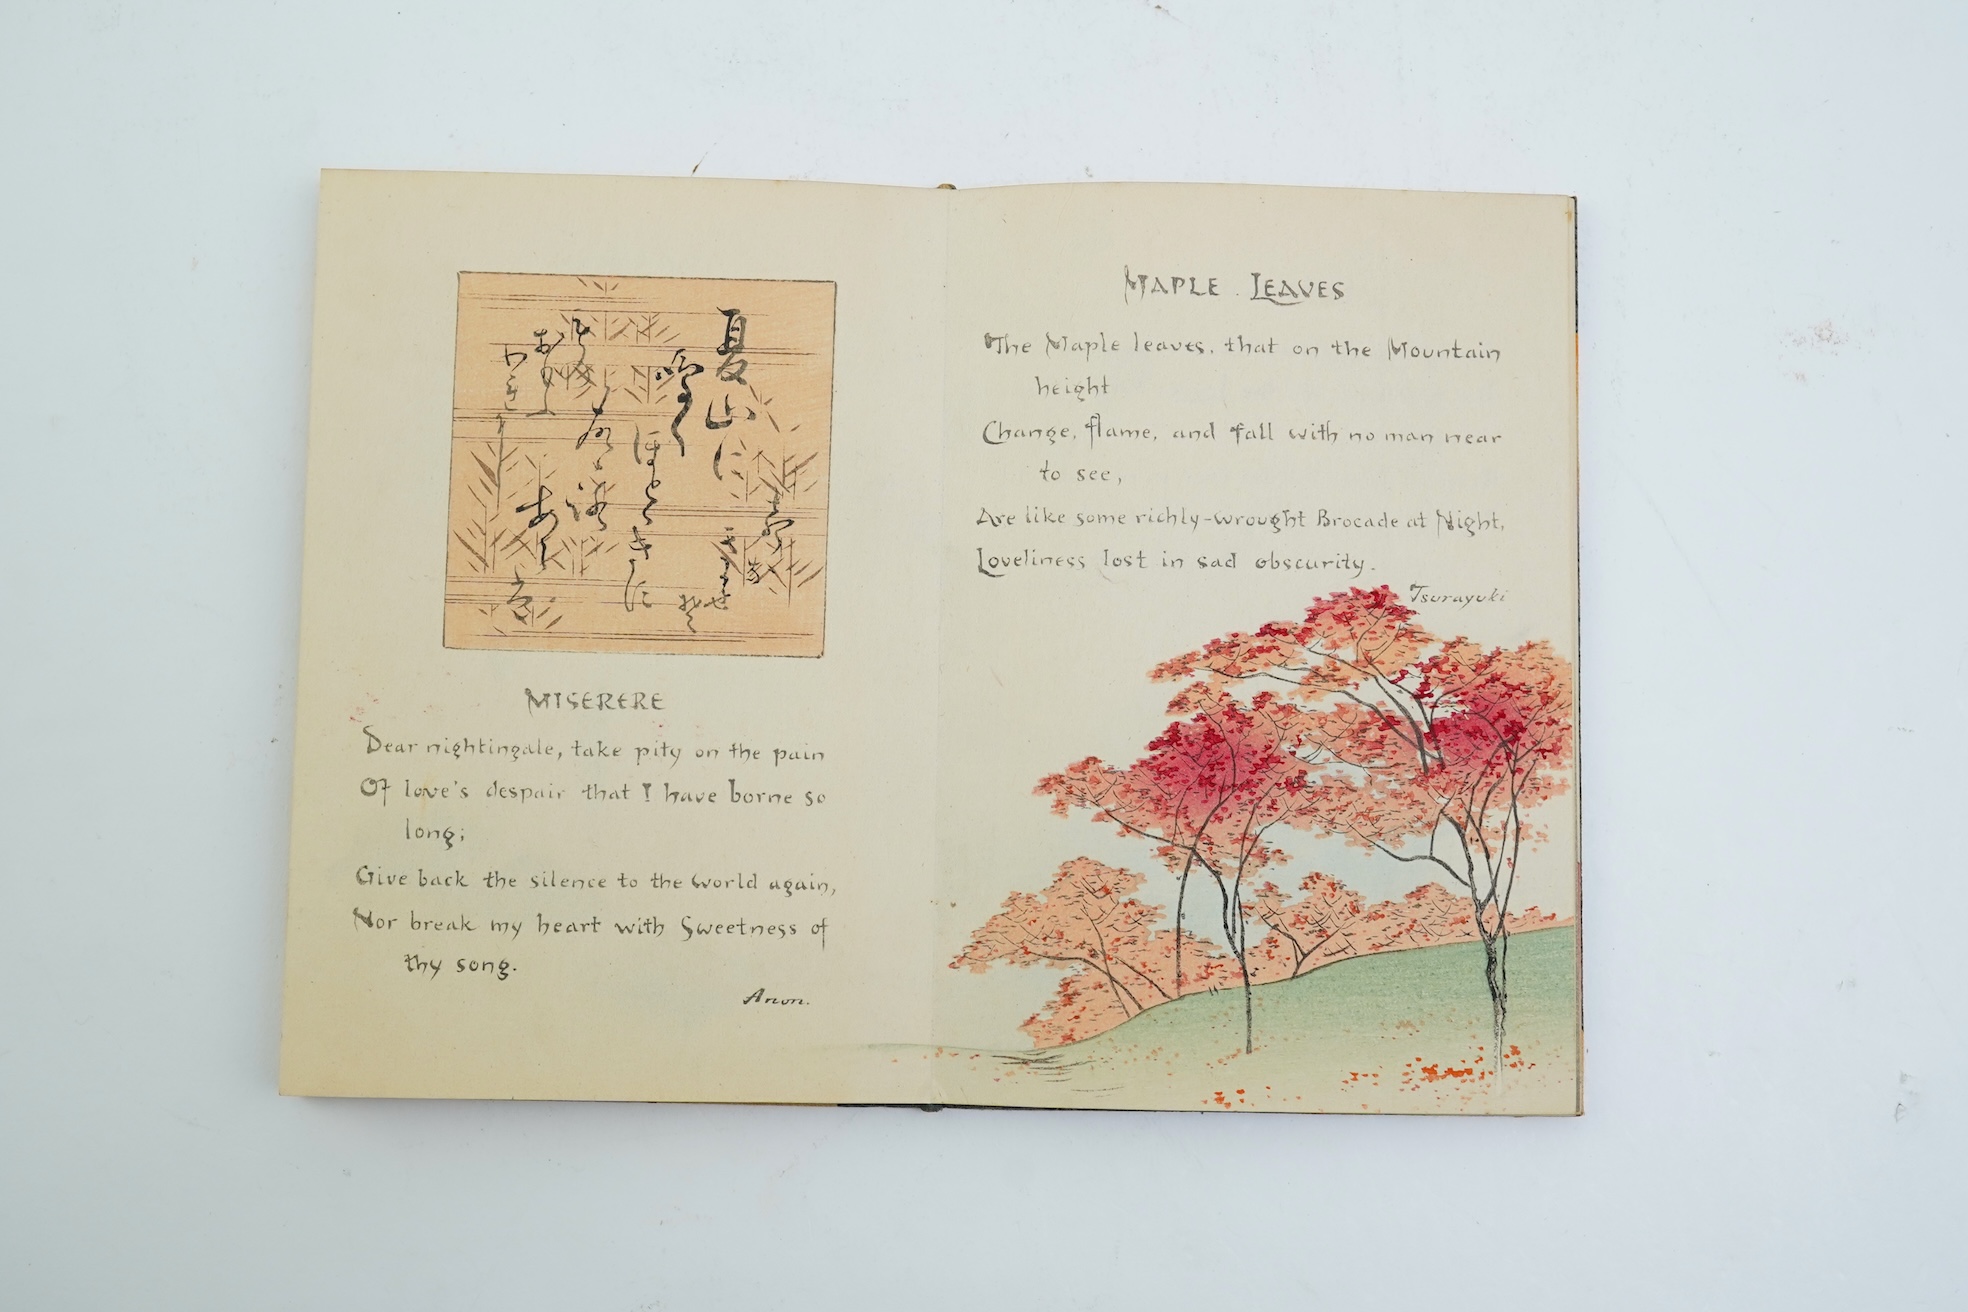 夏山に
鳴く
ほとゝきす
MISERERE
Dear nightingale, take pity on the pain
Of love's despair that I have borne so
long;
Give back the silence to the world again,
Nor break my heart with Sweetness of
thy song.
Anon.
MAPLE LEAVES
The Maple leaves, that on the Mountain
height
Change, flame, and fall with no man near
to see,
Are like some richly-wrought Brocade at Night,
Loveliness lost in sad obscurity.
Tsurayuki